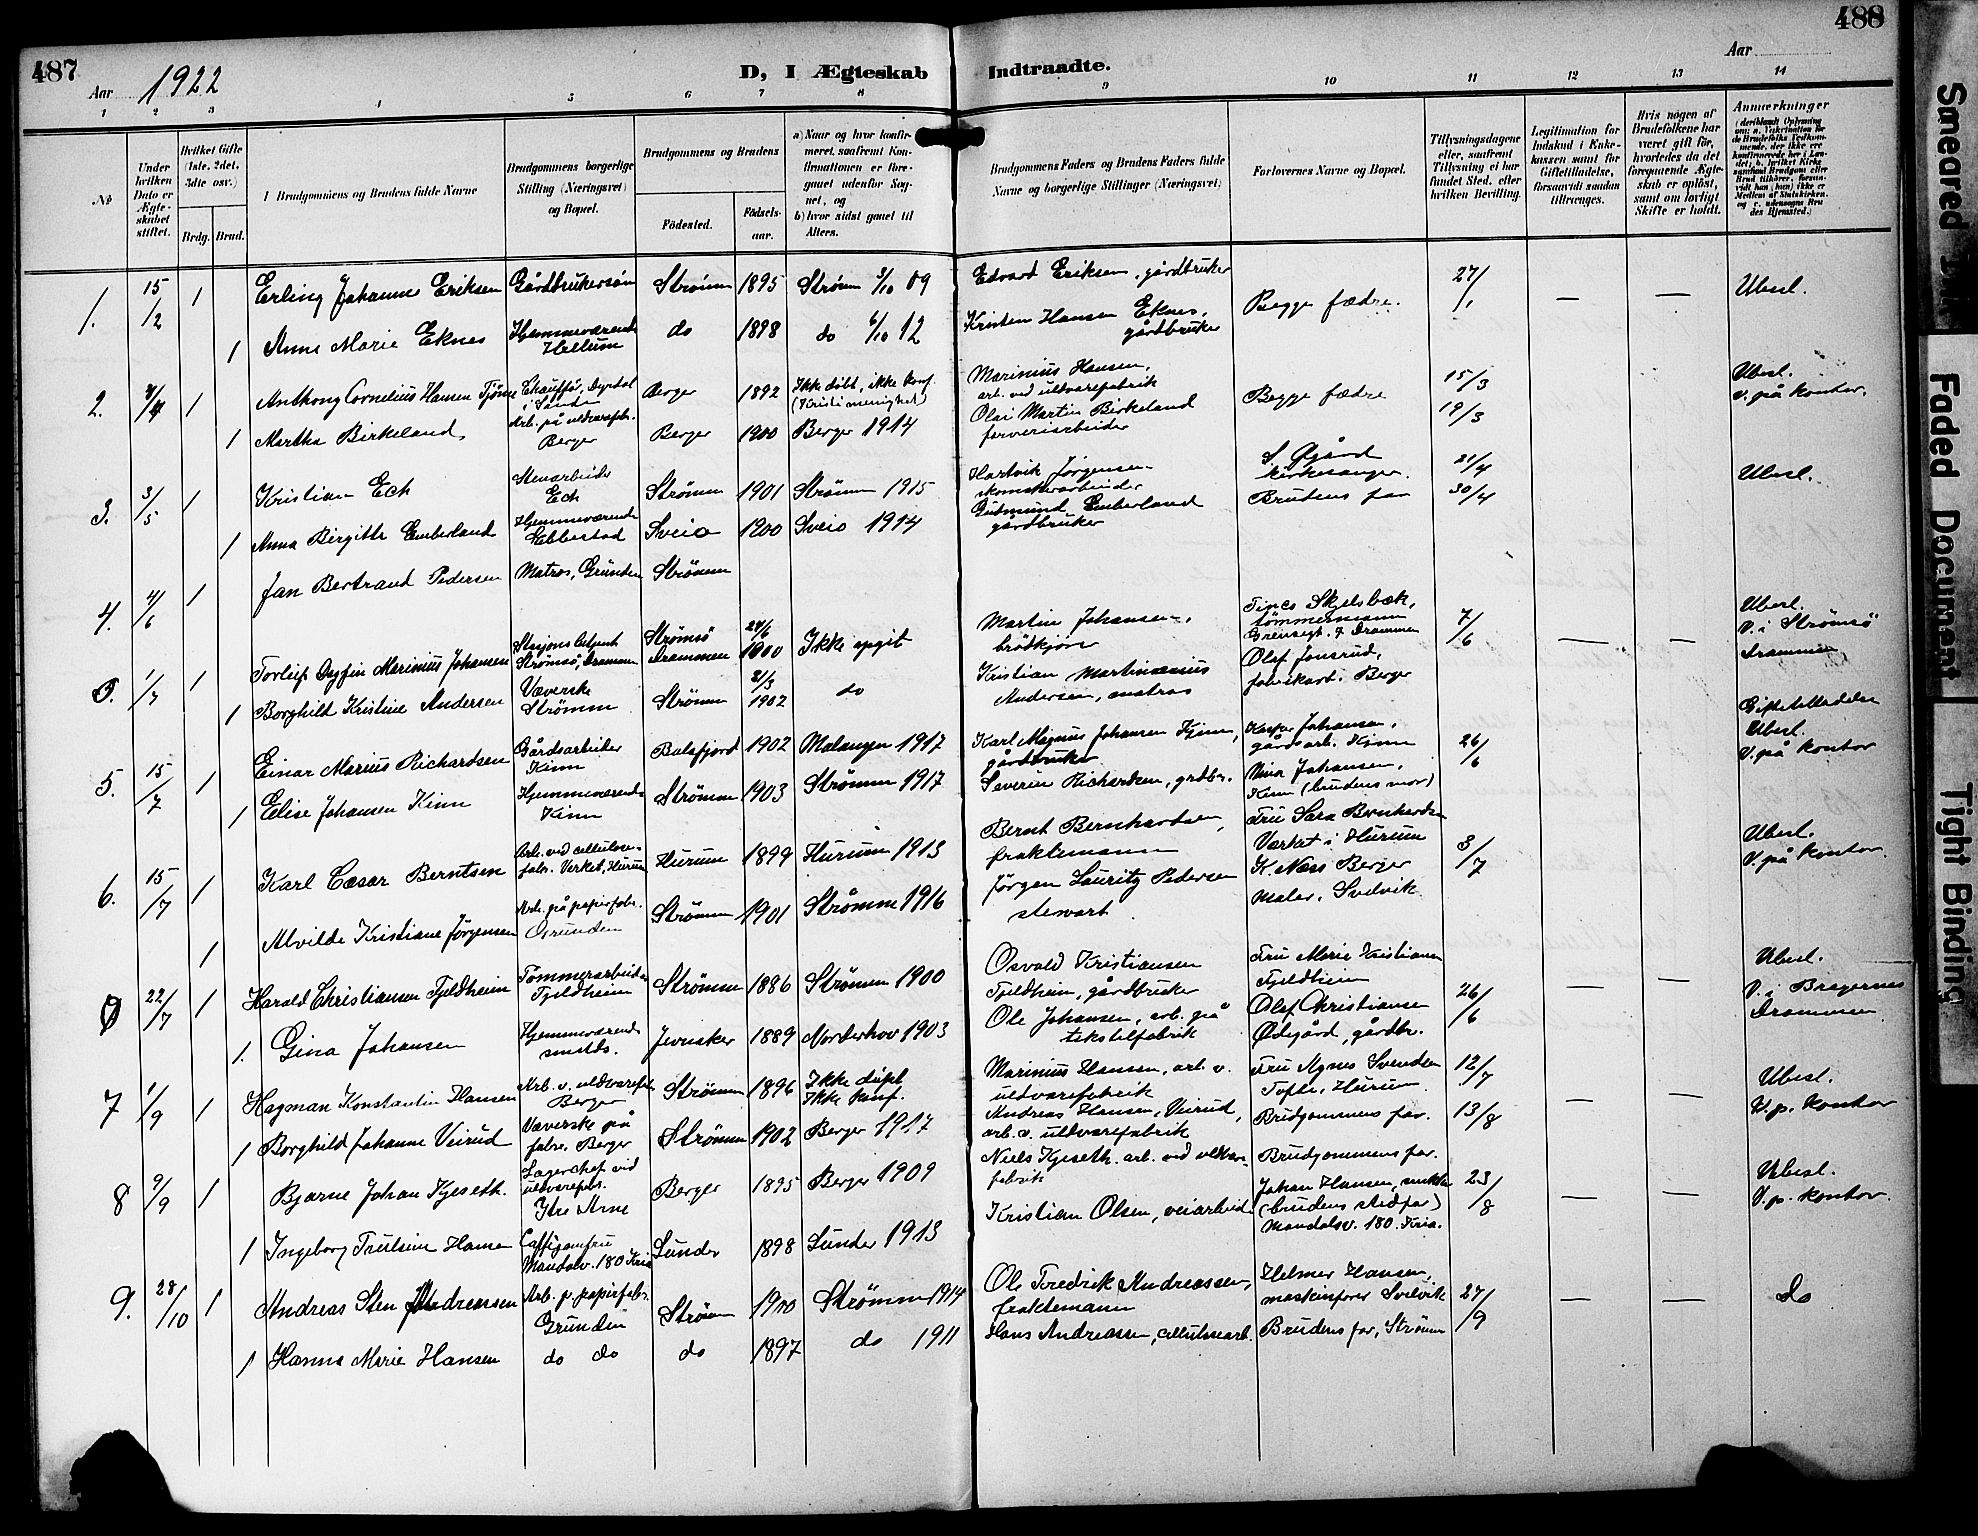 487
488
Aar 1922
D, I Ægteskab Indtraadte.
Aar
1 2 3 4 5 6 7 8 9 10 11 12 13 14
No
Under hvilken Dato er Ægteskabet stiftet.
Hvilket Gifte (1ste, 2det, 3die osv.)
Brdg. Brud.
Brudgommens og Brudens fulde Navne
Brudgommens borgerlige Stilling (Næringsvei) og Bopæl.
Brudgommens og Brudens
Fødested.
Fødsels-aar.
a) Naar og hvor konfirmeret, saafremt Konfirmationen er foregaaet udenfor Sognet, og
b) hvor sidst gaaet til Alters.
Brudgommens Faders og Brudens Faders fulde Navne og borgerlige Stillinger (Næringsvei)
Forlovernes Navne og Bopæl.
Tillysningsdagene eller, saafremt Tillysning ei har fundet Sted, efter hvilken Bevilling.
Legitimation for Indskud i Enkekassen samt for Giftetilladelse, forsaavidt saadan tiltrænges.
Hvis nogen af Brudefolkene har været gift før, hvorledes da det foregaaende Ægteskab er opløst, samt om lovligt Skifte er holdt.
Anmærkninger
1. 15/2 1 Erling Johannes Eriksen Gårdbrukersøn Strømm 1895 Strømm 3/10 09 Edvard Eriksen, gårdbruker Begge fædre. 27/1 — — Ubesl.
1 Anne Marie Eknes Hjemmeværende Hellum do 1898 do 6/10 12 Kristen Hansen Eknes, gårdbruker
2. 1 Anthony Cornelius Hansen Tjøme Chauffør, Dyrdal i Sande Berger 1892 Ikke døbt, ikke konf. (Kristi menighet) Marinius Hansen, arb. ved uldvarefabrik Begge fædre 15/3 Ubesl. V. på kontor.
1 Martha Birkeland Arb. på uldvarefabr. Berger Berger 1900 Berger 1914 Olai Martin Birkeland farveriarbeider 19/3
3. 3/5 1 Kristian Eck Stenarbeider Eck Strømm 1901 Strømm 1915 Hartvik Jørgensen skomakerarbeider S. Øgård kirkesanger. 21/4 Ubesl.
1 Anna Birgitte Emberland Hjemmeværende Ebbestad Sveio 1900 Sveio 1914 Gudmund Emberland gårdbruker Brudens far 30/4
4. 4/6 1 Jan Bertrand Pedersen Matros, Grunden Strømm
1/7 1 Torleif Dagfin Marinius Johansen Strømsø, Drammen Strømsø Drammen 1900 Ikke opgit Martin Johansen, brødkjører Skjelsbæk, tømmermann 7 Drammen 7/6 — — Ubesl. V. i Strømsø Drammen
1 Borghild Kristine Andersen Væverske Strømm Strømm 21/3 1902 do Kristian Martinænius Andersen, matros Olaf Jonsrud, fabrikarb. Berger
5. 15/7 1 Einar Marius Richardsen Gårdsarbeider Kinn Balsfjord 1902 Malangen 1917 Karl Magnus Johansen Kjinn, gårdbruker Johansen, gårdsarb. Kinn 26/6 Giftetilladelse Ubesl. V. på kontor
1 Elise Johansen Kinn Hjemmeværende Kinn Strømm 1903 Strømm 1917 Severin Richardsen, grdbr. Johansen, Kinn (brudens mor)
6. 15/7 1 Karl Cæsar Berntsen Arb. ved cellulosefabr. Verket, Hurum Hurum 1899 Hurum 1913 Bernt Bernhardsen, fraktemann Fru Sara Bernhardsen Verket i Hurum 3/7 Ubesl. V. på kontor.
1 Alvilde Kristiane Jørgensen Arb. på papirfabr. Grunden Strømm 1901 Strømm 1916 Jørgen Lauritz Pedersen stewart K. Næss Berger maler, Svelvik
22/7 1 Harald Christiansen Fjeldheim Tømmerarbeider Fjeldheim Strømm 1886 Strømm 1900 Osvald Kristiansen Fjeldheim, gårdbruker Fru Marie Kristiansen Fjeldheim 26/6 — — Ubesl. V. i Bragernes Drammen
1. Gina Johansen Hjemmeværende smsts. Jevnaker 1889 Norderhov 1903 Ole Johansen, arb. på tekstilfabrik Olaf Christiansen Ødegård, gårdbr.
7 1/9 1 Hagman Konstantin Hansen Arb. v. uldvarefabr. Berger Strømm 1896 Ikke døpt Ikke konf. Marinius Hansen, arb. v. uldvarefabrik Fru Agnes Svendsen Tofte, Hurum 12/7 — — Ubesl. V. p. kontor
1 Borghild Johanne Veirud Væverske på fabr. Berger Strømm 1902 Berger 1917 Andreas Hansen, Veirud, arb. v. uldvarefabrik Brudgommens far. 13/8
8 9/9 1 Bjarne Johan Kjeseth. Lagerchef ved uldvarefabr. Berger 1895 Berger 1909 Niels Kjeseth. arb. ved uldvarefabrik Brudgommens far. 23/8 — — Ubesl. V. p. kontor.
1 Ingeborg Trulsine Hansen Mandalsv. 180 Kria Sunder 1898 Sunder 1913 Kristian Olsen, veiarbeider Johan Hansen, (brudens stedfar) Mandalsv. 180. Kria.
9. 28/10 1 Andreas Sten Andreassen Arb. p. papirfabr. Grunden Strømm 1900 Strømm 1914 Ole Fredrik Andreassen, fraktemann Helmer Hansen, maskinfører Svelvik 27/9 — — do
1 Hanna Marie Hansen do do do 1897 do 1911 Hans Andreassen, cellulosearb. Brudens far, Strømm
Smeared
Faded Document
Tight Binding